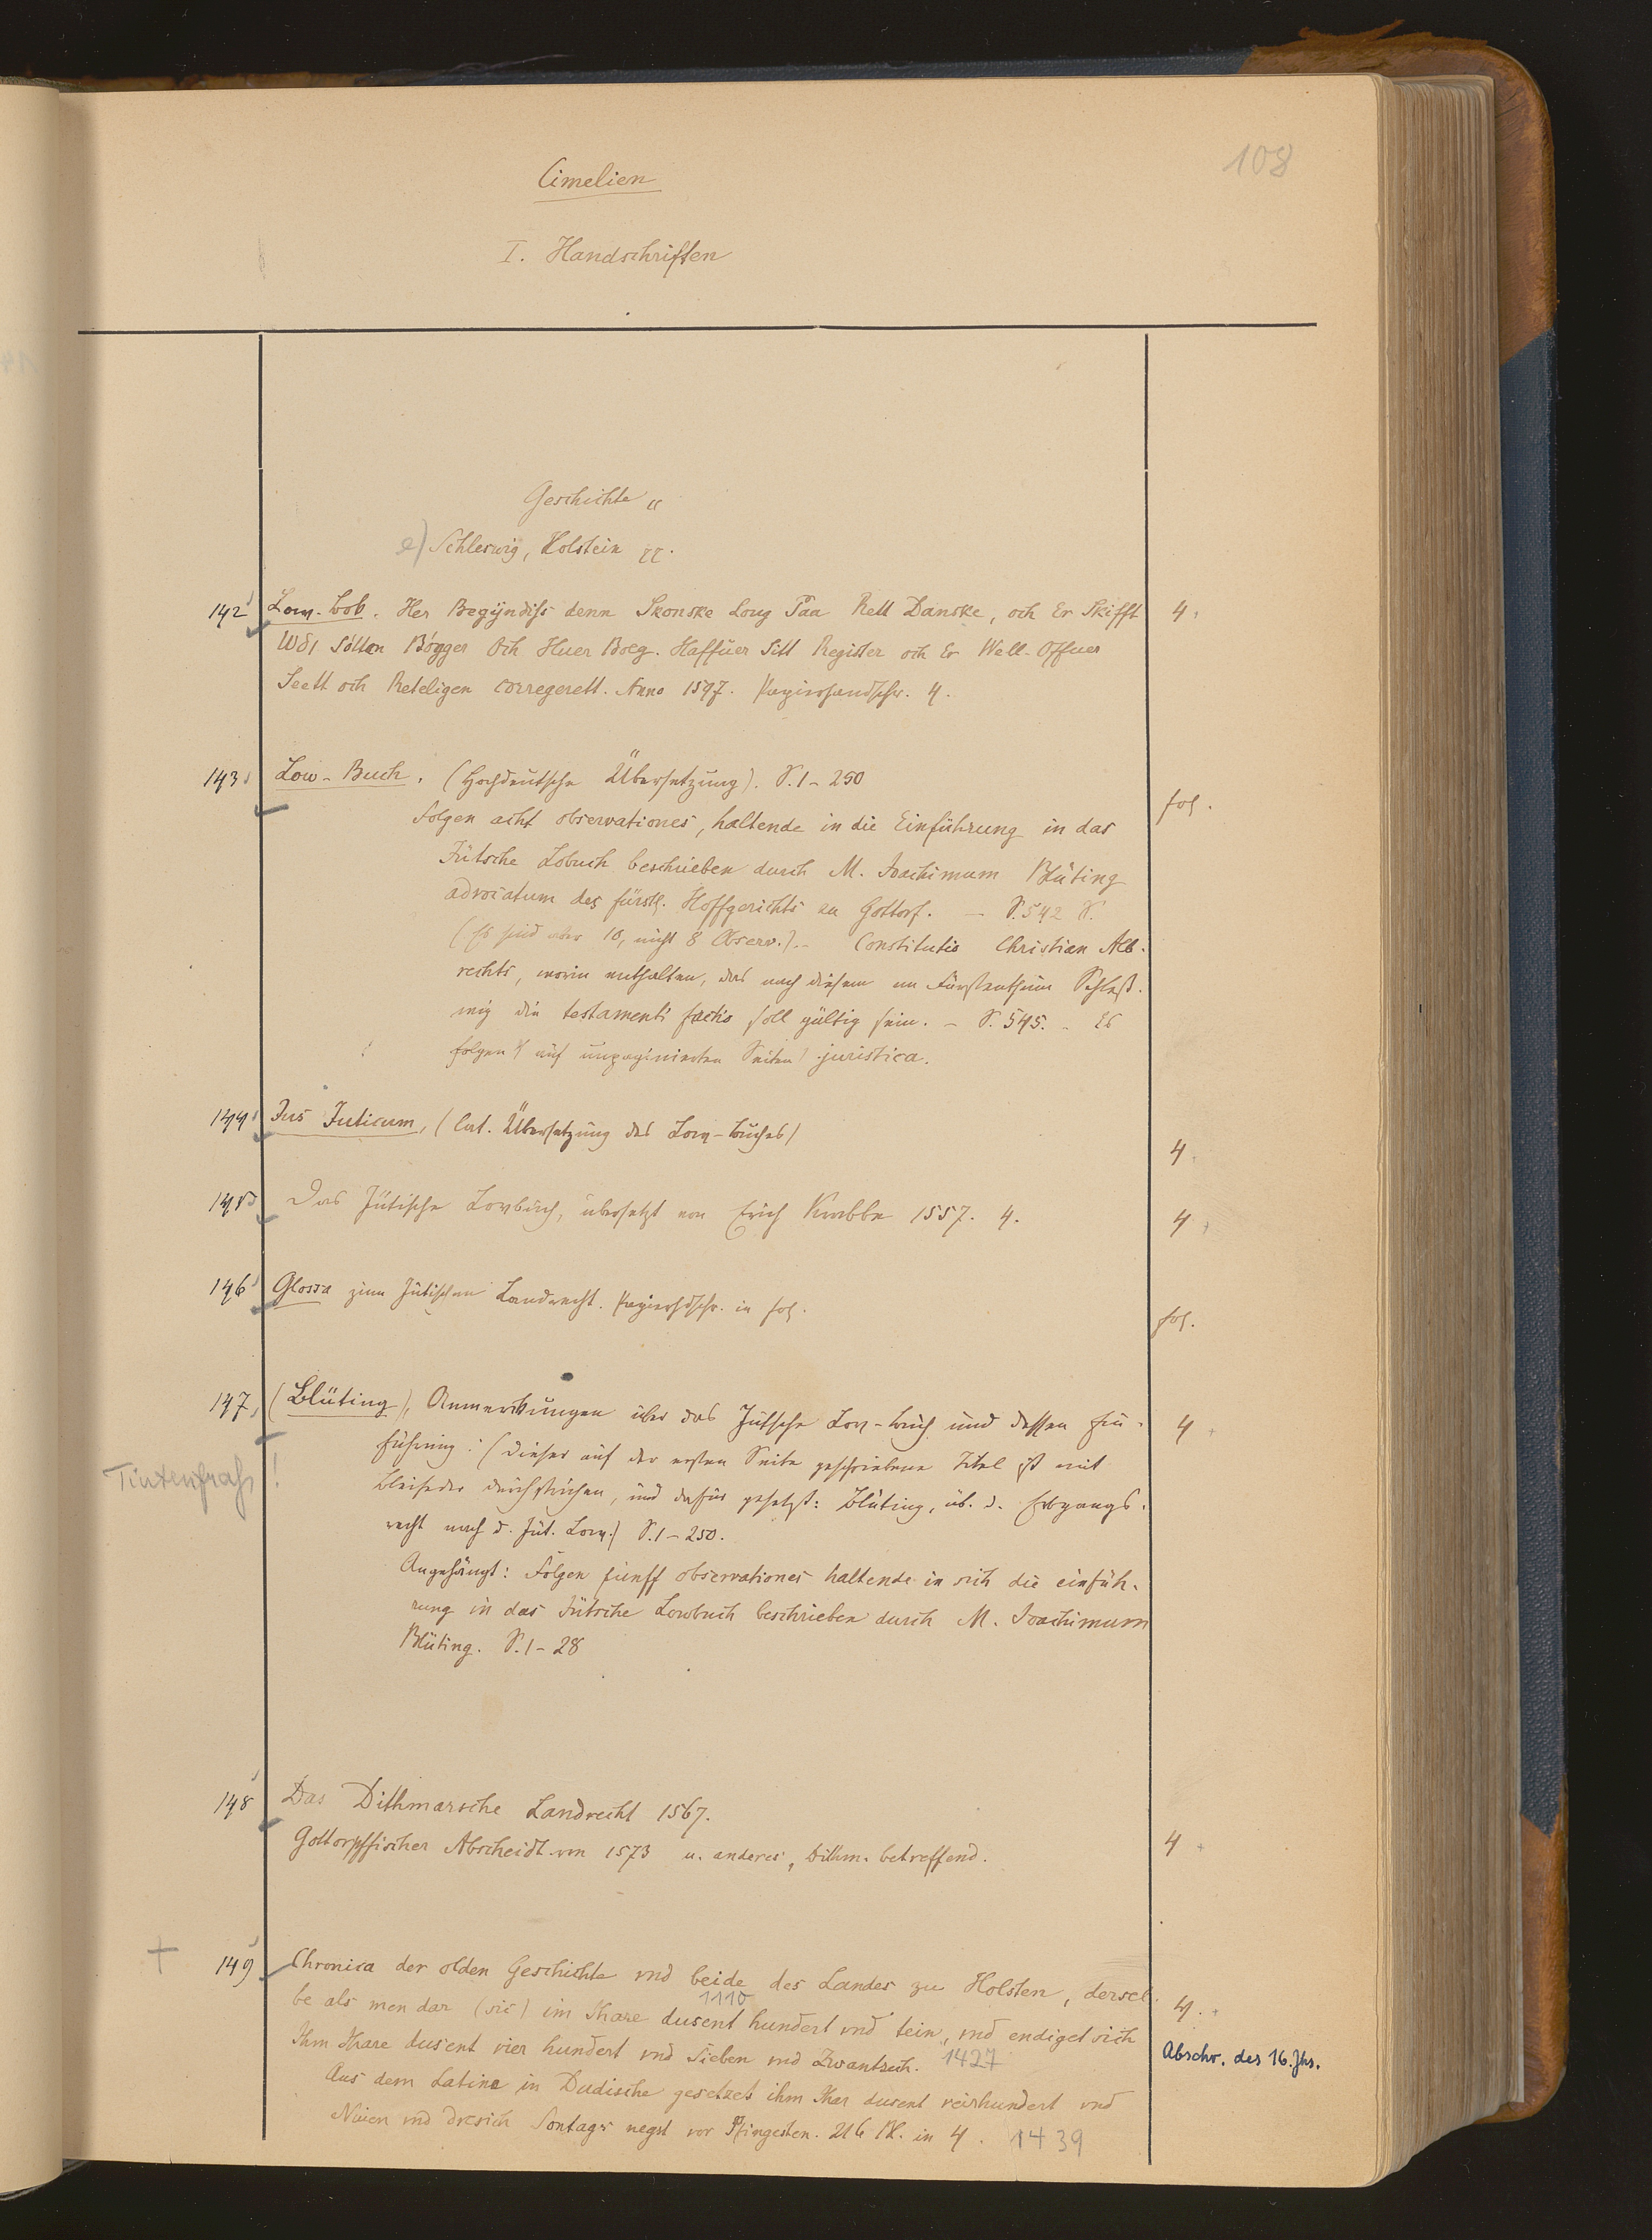 108
Cimelien
I. Handschriften
Geschichte
e) Schleswig, Holstein
142 Low-Bob. Her Begÿndiss denn Skonske Loug Paa Rett Danske, och Er Skifft 4.
Udi Sötten Bögger Och Huer Boeg. Haffuer Sitt Register och Er Well-Offuer
Seett och Reteligen corregerett. Anno 1597. Papierhandschr. 4.
143 Low-Buch. (Hochdeutsche Übersetzung). S. 1-250 fol.
Folgen acht observationes, haltende in die Einführung in das
Jütsche Lobuch beschrieben durch M. Joachimum Blüting
advocatum des fürstl. Hoffgerichts zu Gottorf. - S. 542
(Es sind aber 10, nicht 8 Observ.).- Constitutio Christian Alb-
rechts, worin enthalten, das nach diesem im Fürstenthum Schleß-
wig die testamenti factio soll gültig sein. - S. 545. - Es
folgen auf unpaginierten Seiten juristica.
144 Jus Juticum, (lat. Übersetzung des Low-Buches) 4.
145 Das Jütische Lowbuch, übersetzt von Erich Krabbe 1557. 4. 4
146 Glossa zum Jütischen Landrecht. Papierhdschr. in fol. fol.
147 (Blüting), Anmerkungen über das Jütsche Low-Buch und dessen Ein- 4
führung. (Dieser auf der ersten Seite geschriebene Titel ist mit
Tintenfraß!
Bleifeder durchstrichen, und dafür gesetzt: Blüting, üb. d. Erbgangs-
recht nach d. Jüt. Low.) S. 1-250.
Angehängt: Folgen fünff observationes haltende in sich die einfüh-
rung in das Jütsche Lowbuch beschrieben durch M. Joachimum
Blüting. S. 1-28
148 Das Dithmarsche Landrecht 1567.
Gottorpffischer Abscheidt von 1573 u. anderes, Dithm. betreffend. 4
149 Chronica der olden Geschichte vnd beide des Landes zu Holsten, dersel- 4.
1110
be als men dar (sic) im Jhare dusent hundert vnd tein, vnd endiget sich
Ihm Jhare dusent vier hundert vnd Sieben vnd Zwantzich. 1427 Abschr. des 16. Jhs.
Aus dem Latine in Dudische gesetzet ihm Jhar dusent veirhundert vnd
Nüien vnd dresich Sontags negst vor Pfingesten. 216 Bl. in 4. 1439